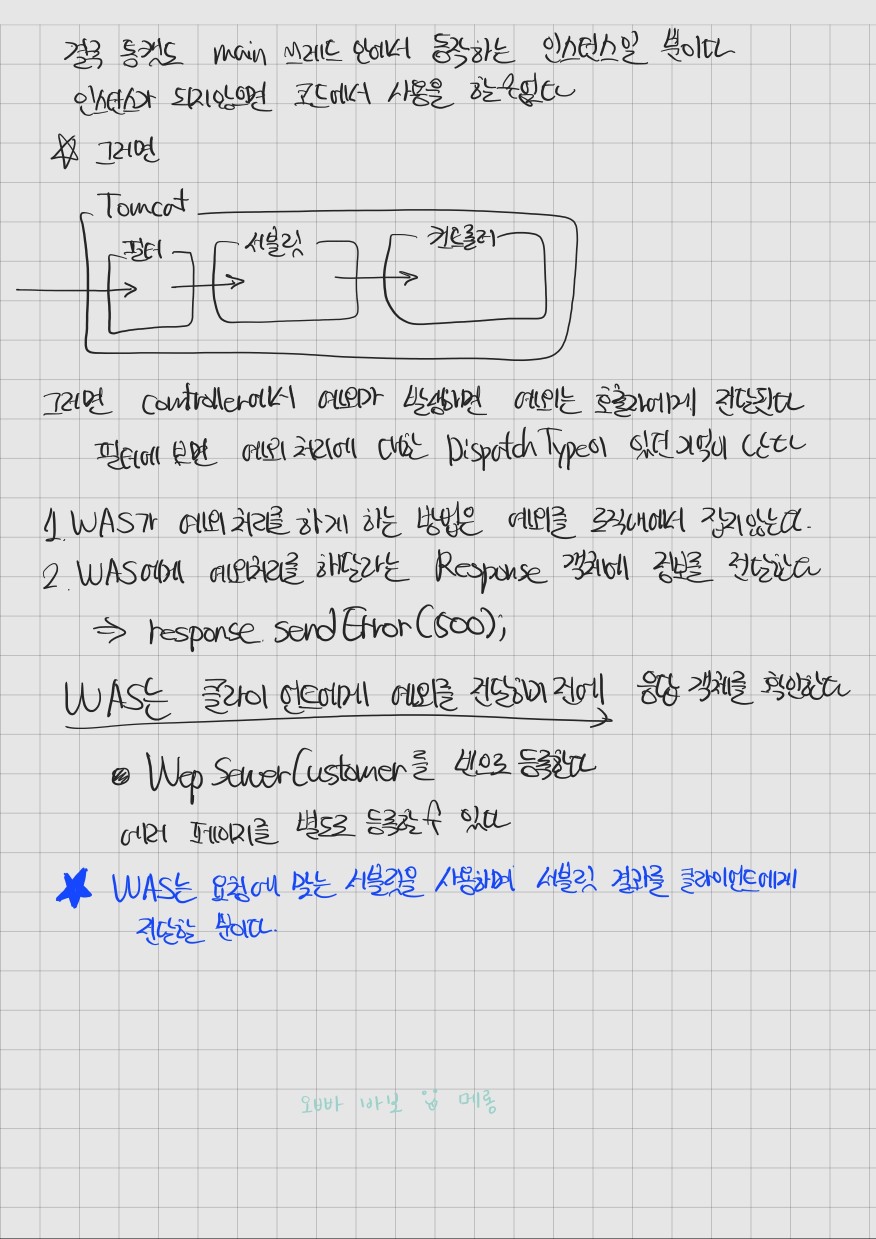 결국 톰캣도 main 쓰레드 안에서 동작하는 인스턴스일 뿐이다
인스턴스가 되지않으면 코드에서 사용을 할 수 없다
☆ 그러면
Tomcat
필터 서블릿 컨트롤러
그러면 controller에서 예외가 발생하면 예외는 호출자에게 전달된다
필터에 보면 예외 처리에 대한 Dispatch Type이 있던 기억이 난다
1. WAS가 예외 처리를 하게 하는 방법은 예외를 로직내에서 잡지않는다.
2. WAS에게 예외처리를 해달라는 Response 객체에 정보를 전달한다
⇒ response.sendError(500);
WAS는 클라이언트에게 예외를 전달하기 전에 응답 객체를 확인한다
● Wep ServerCustomer를 빈으로 등록한다
에러 페이지를 별도로 등록할 수 있다
★ WAS는 요청에 맞는 서블릿을 사용하며 서블릿 결과를 클라이언트에게
전달할 뿐이다.
오빠 바보 메롱